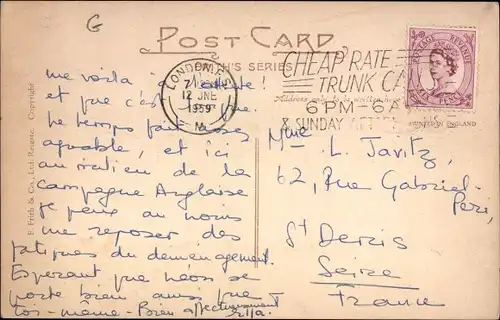 G
POST CARD
TH'S SERIES
LONDON
12 JNE
1959
CHEAP RATE
TRUNK CA
6 PM - 6 A
& SUNDAY AFTE
POSTAGE REVENUE
PRINTED IN ENGLAND
F. Frith & Co., Ltd. Reigate. Copyright
me voila
et que c'est
le temps fait
agréable, et ici
au milieu de la
campagne Anglaise
je peux au moins
me reposer des
fatigues du demenagement.
Esperant que Néos se
porte bien ainsi que
Toi-même - Bien affectueusement
Mme. L. Javitz,
62, Rue Gabriel-
Peri,
St Denis
Seine
France